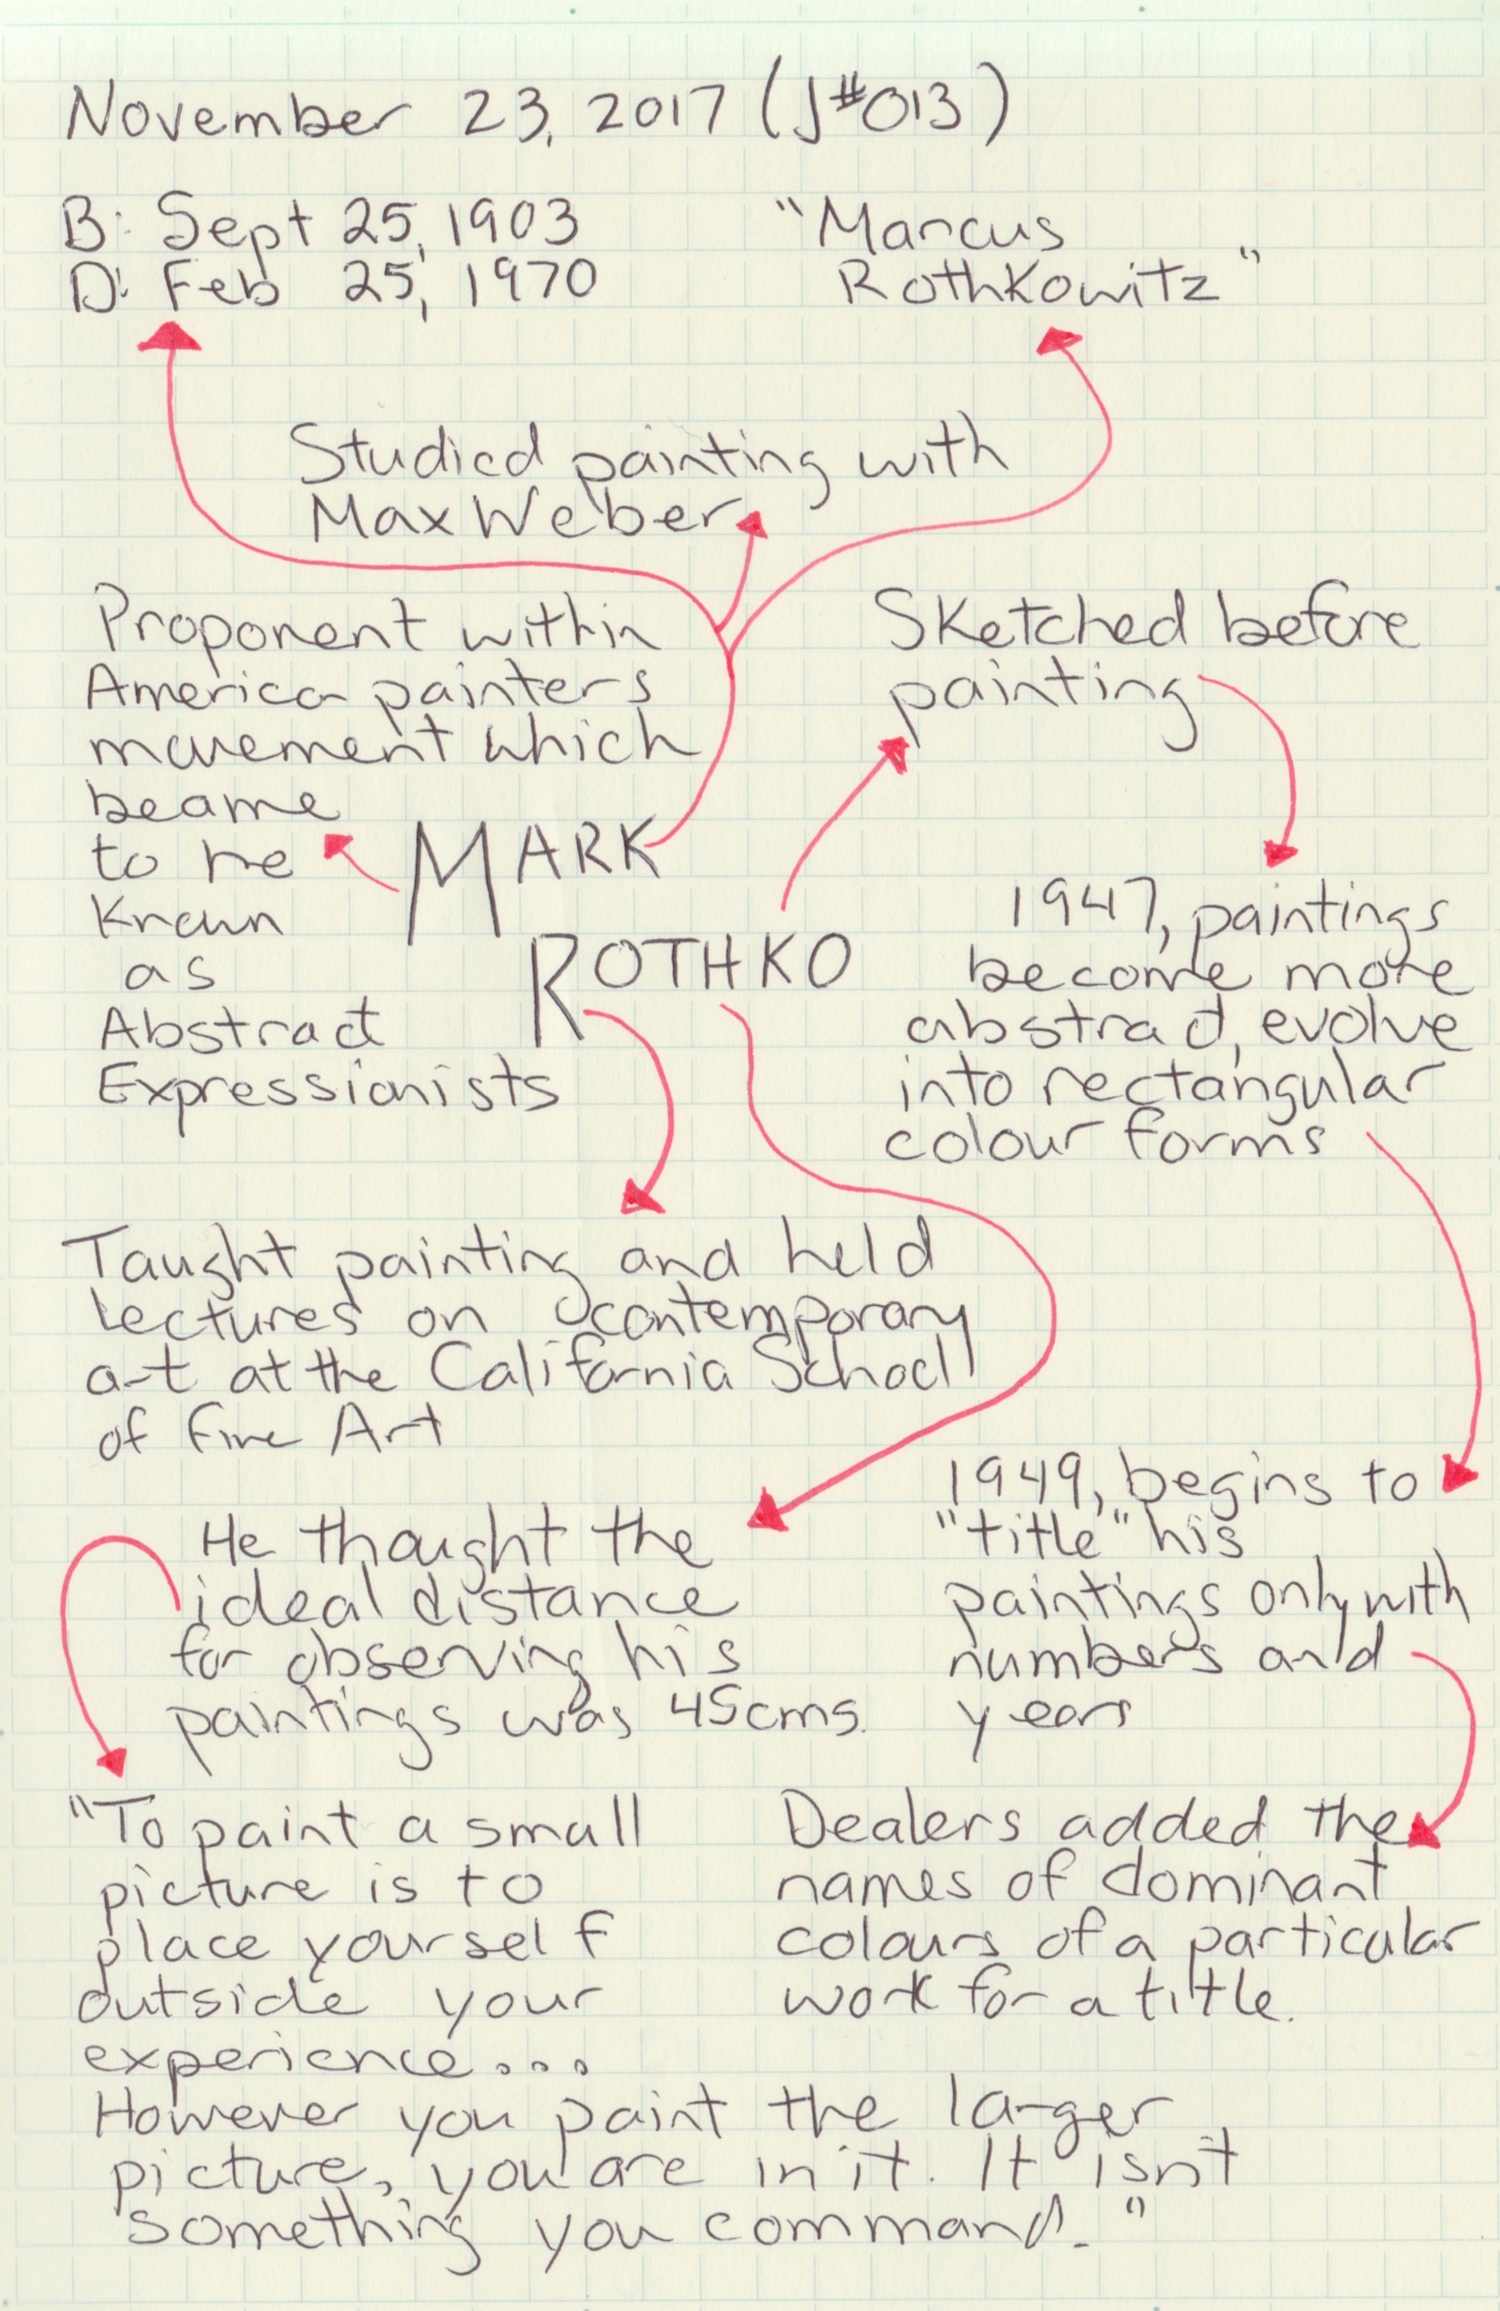 November 23, 2017 (J#013)
B: Sept 25, 1903
D: Feb 25, 1970
"Marcus
Rothkowitz"
Studied painting with
Max Weber
Proponent within
America painters
movement which
beame
to be
known
as
Abstract
Expressionists
MARK
ROTHKO
Sketched before
painting
1947, paintings
become more
abstract, evolve
into rectangular
colour forms
Taught painting and held
lectures on contemporary
art at the California School
of Fine Art
He thought the
ideal distance
for observing his
paintings was 45cms.
1949, begins to
"title" his
paintings only with
numbers and
years
"To paint a small
picture is to
place yourself
outside your
experience...
However you paint the larger
picture, you are in it. It isn't
something you command."
Dealers added the
names of dominant
colours of a particular
work for a title.